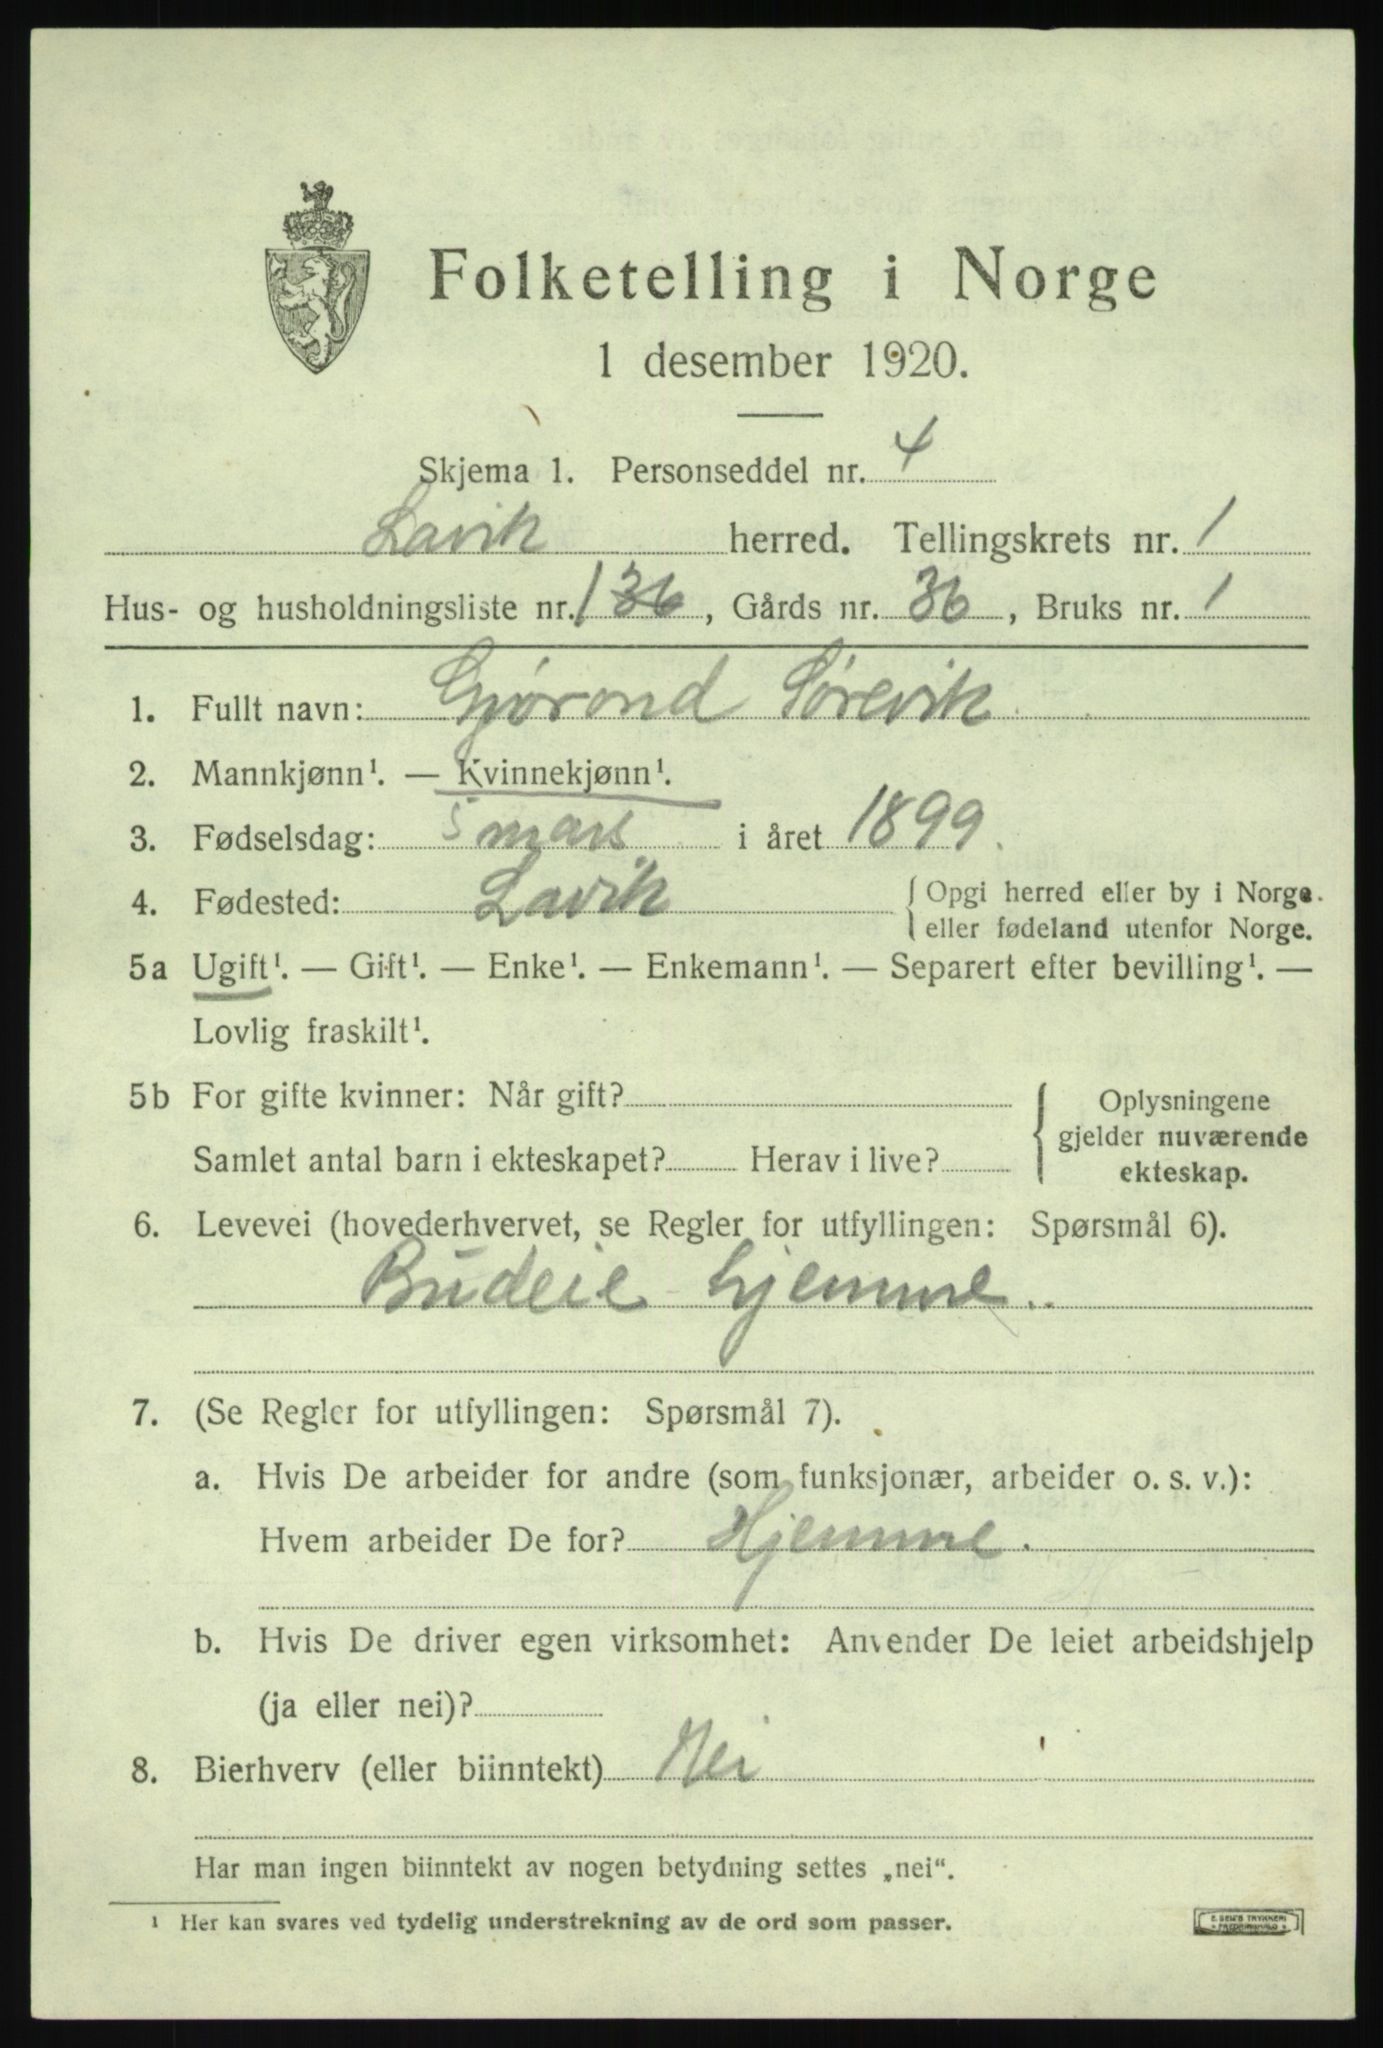 Folketelling i Norge
1 desember 1920.
Skjema 1. Personseddel nr. 4
Lavik herred. Tellingskrets nr. 1
Hus- og husholdningsliste nr. 1 36, Gårds nr. 36, Bruks nr. 1
1. Fullt navn: Gjørond Sørevik
2. Mannkjønn¹. — Kvinnekjønn¹.
3. Fødselsdag: 5 mars i året 1899.
4. Fødested: Lavik { Opgi herred eller by i Norge.
eller fødeland utenfor Norge.
5a Ugift¹. — Gift¹. — Enke¹. — Enkemann¹. — Separert efter bevilling¹. —
Lovlig fraskilt¹.
5b For gifte kvinner: Når gift? { Oplysningene
gjelder nuværende
Samlet antal barn i ekteskapet? Herav i live?
ekteskap.
6. Levevei (hovederhvervet, se Regler for utfyllingen: Spørsmål 6).
Budeie hjemme.
7. (Se Regler for utfyllingen: Spørsmål 7).
a. Hvis De arbeider for andre (som funksjonær, arbeider o. s. v.):
Hvem arbeider De for? Hjemme.
b. Hvis De driver egen virksomhet: Anvender De leiet arbeidshjelp
(ja eller nei)?
8. Bierhverv (eller biinntekt) Nei
Har man ingen biinntekt av nogen betydning settes „nei“.
¹ Her kan svares ved tydelig understrekning av de ord som passer.